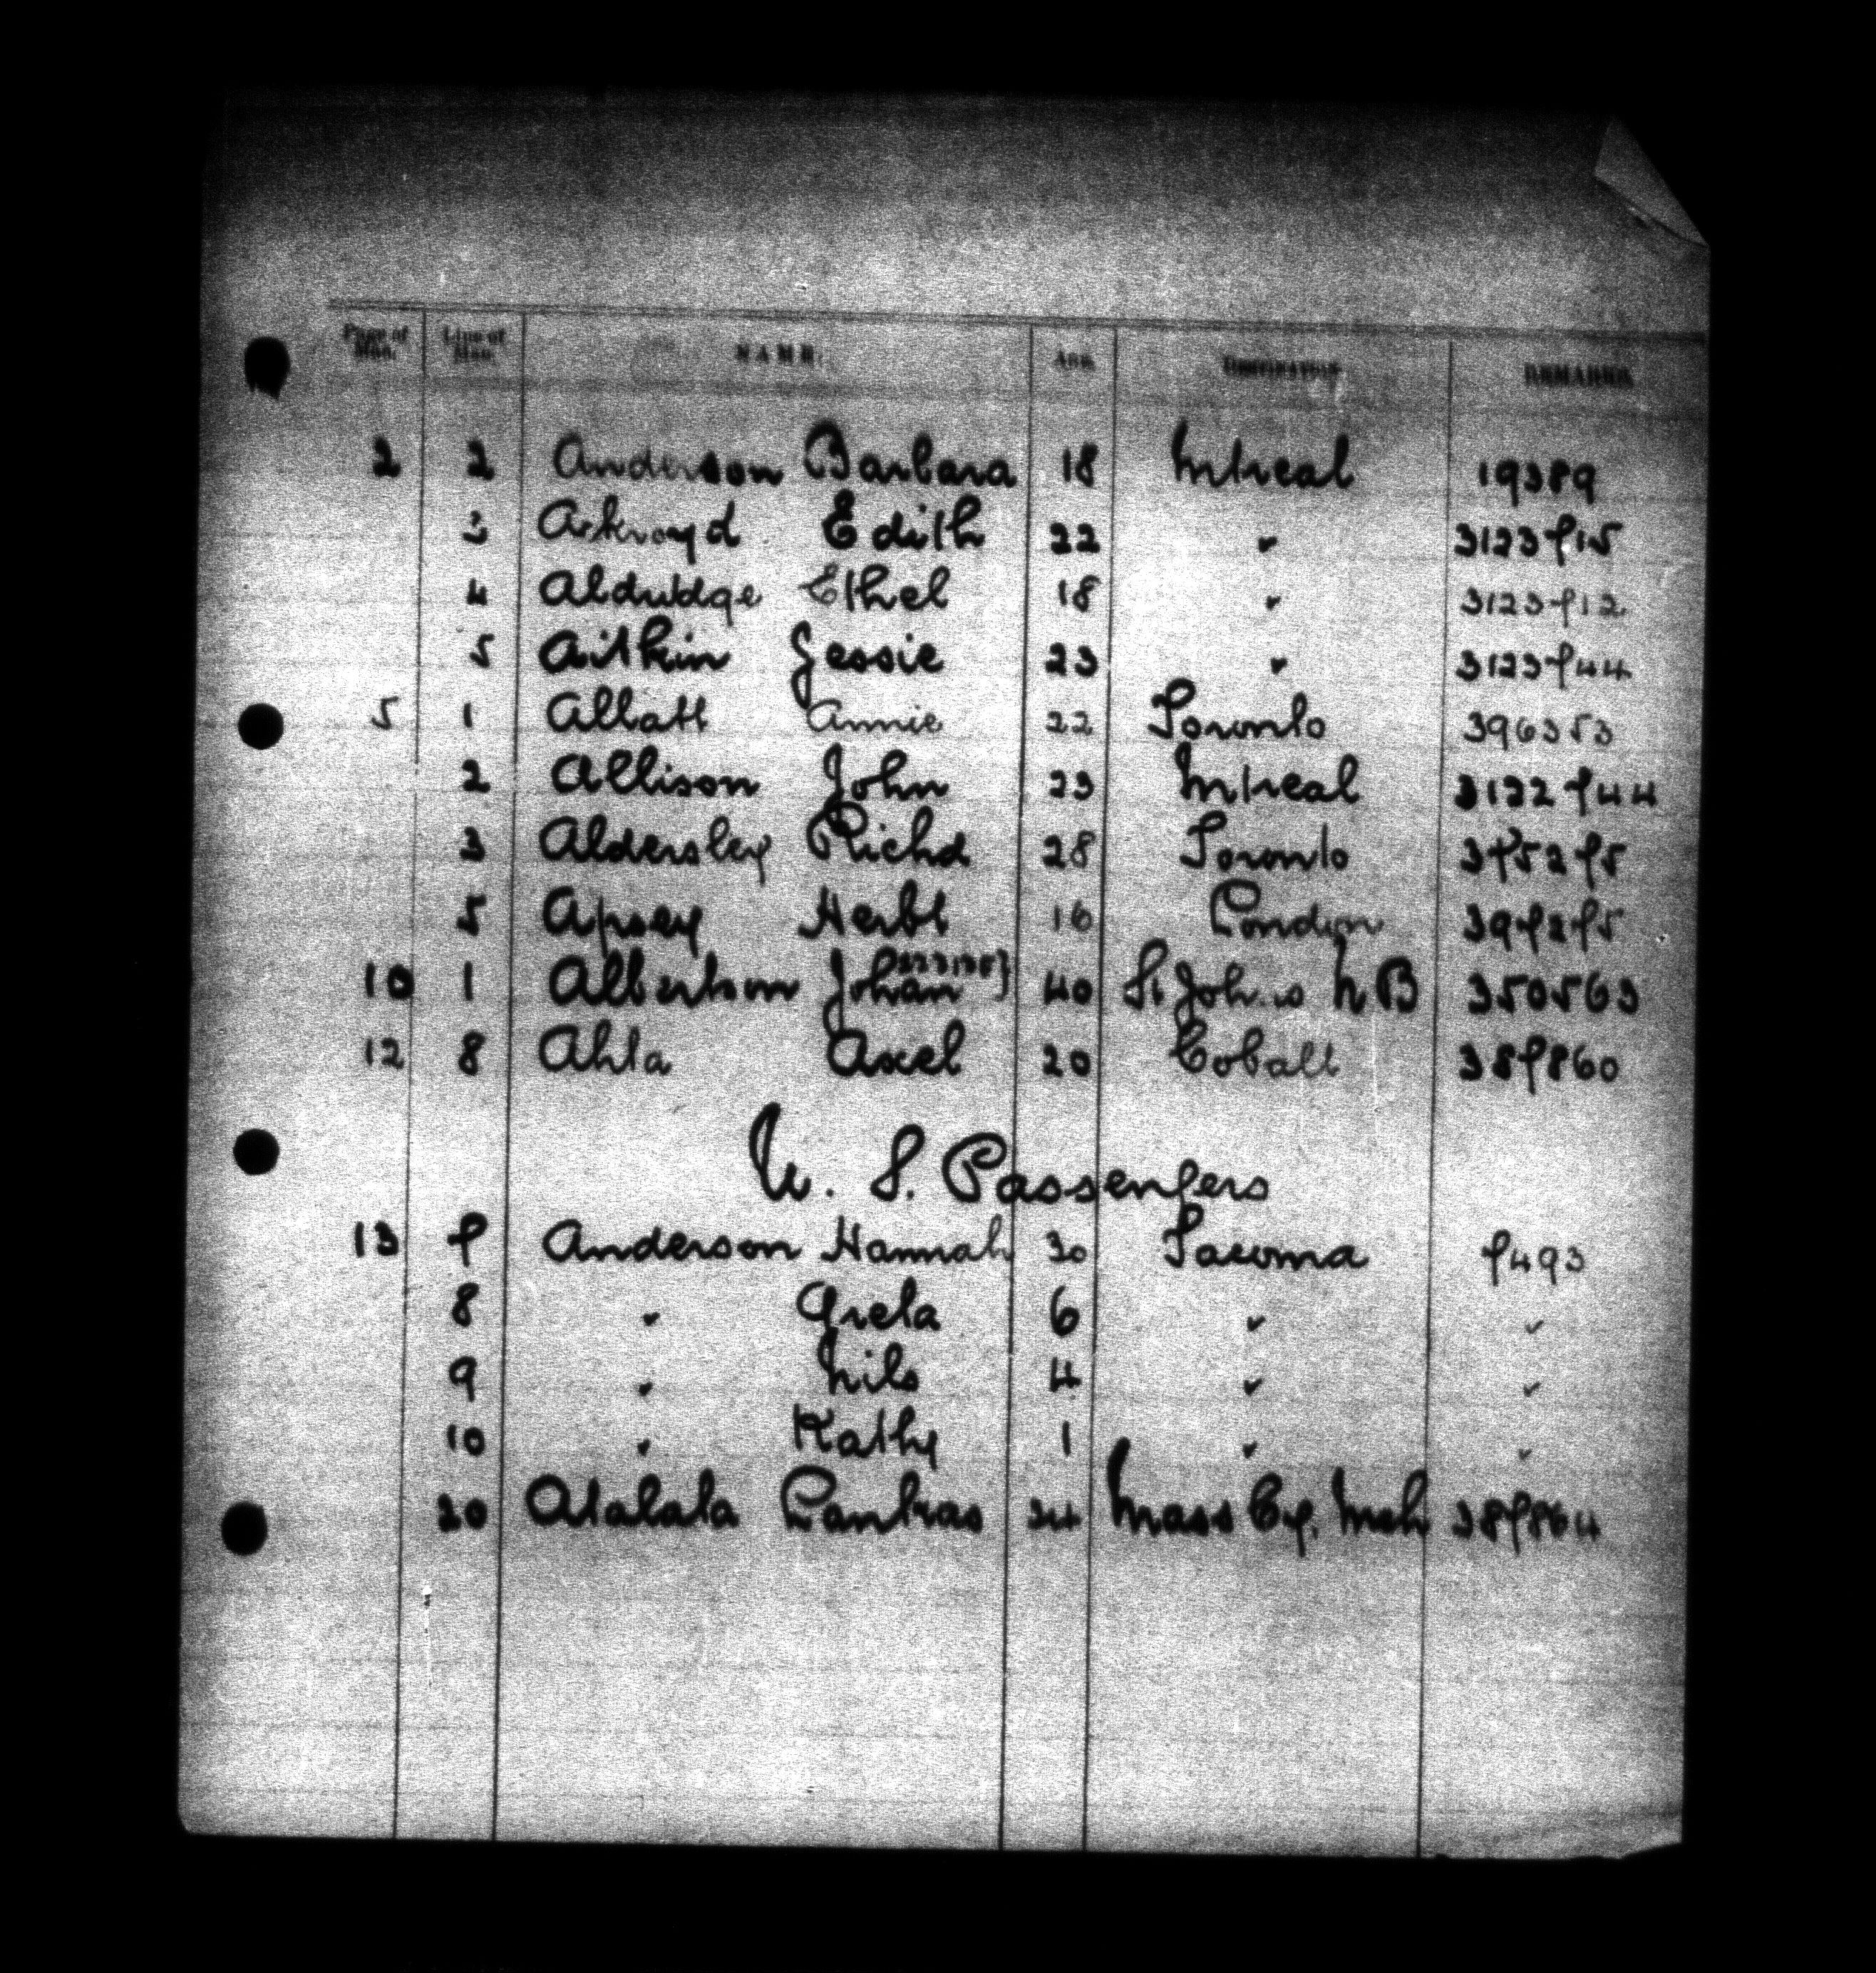 Page of Man. Line of Man. NAME. AGE. DESTINATION REMARKS.
2 2 Anderson Barbara 18 Mtreal 19389
3 Ackroyd Edith 22 " 3123715
4 Aldridge Ethel 18 " 3123712
5 Aitkin Jessie 23 " 3123744
5 1 Allatt Annie 22 Toronto 396353
2 Allison John 23 Mtreal 3122744
3 Aldersley Richd 28 Toronto 375275
5 Apsey Herbt 16 London 397275
10 1 Albertson Johan 40 St Johns N B 350563
12 8 Ahla Axel 20 Cobalt 387860
U. S. Passengers
13 7 Anderson Hannah 30 Tacoma 7493
8 " Greta 6 " "
9 " Nils 4 " "
10 " Kathy 1 " "
20 Atalata 34 Mass Cy. Mch 387864